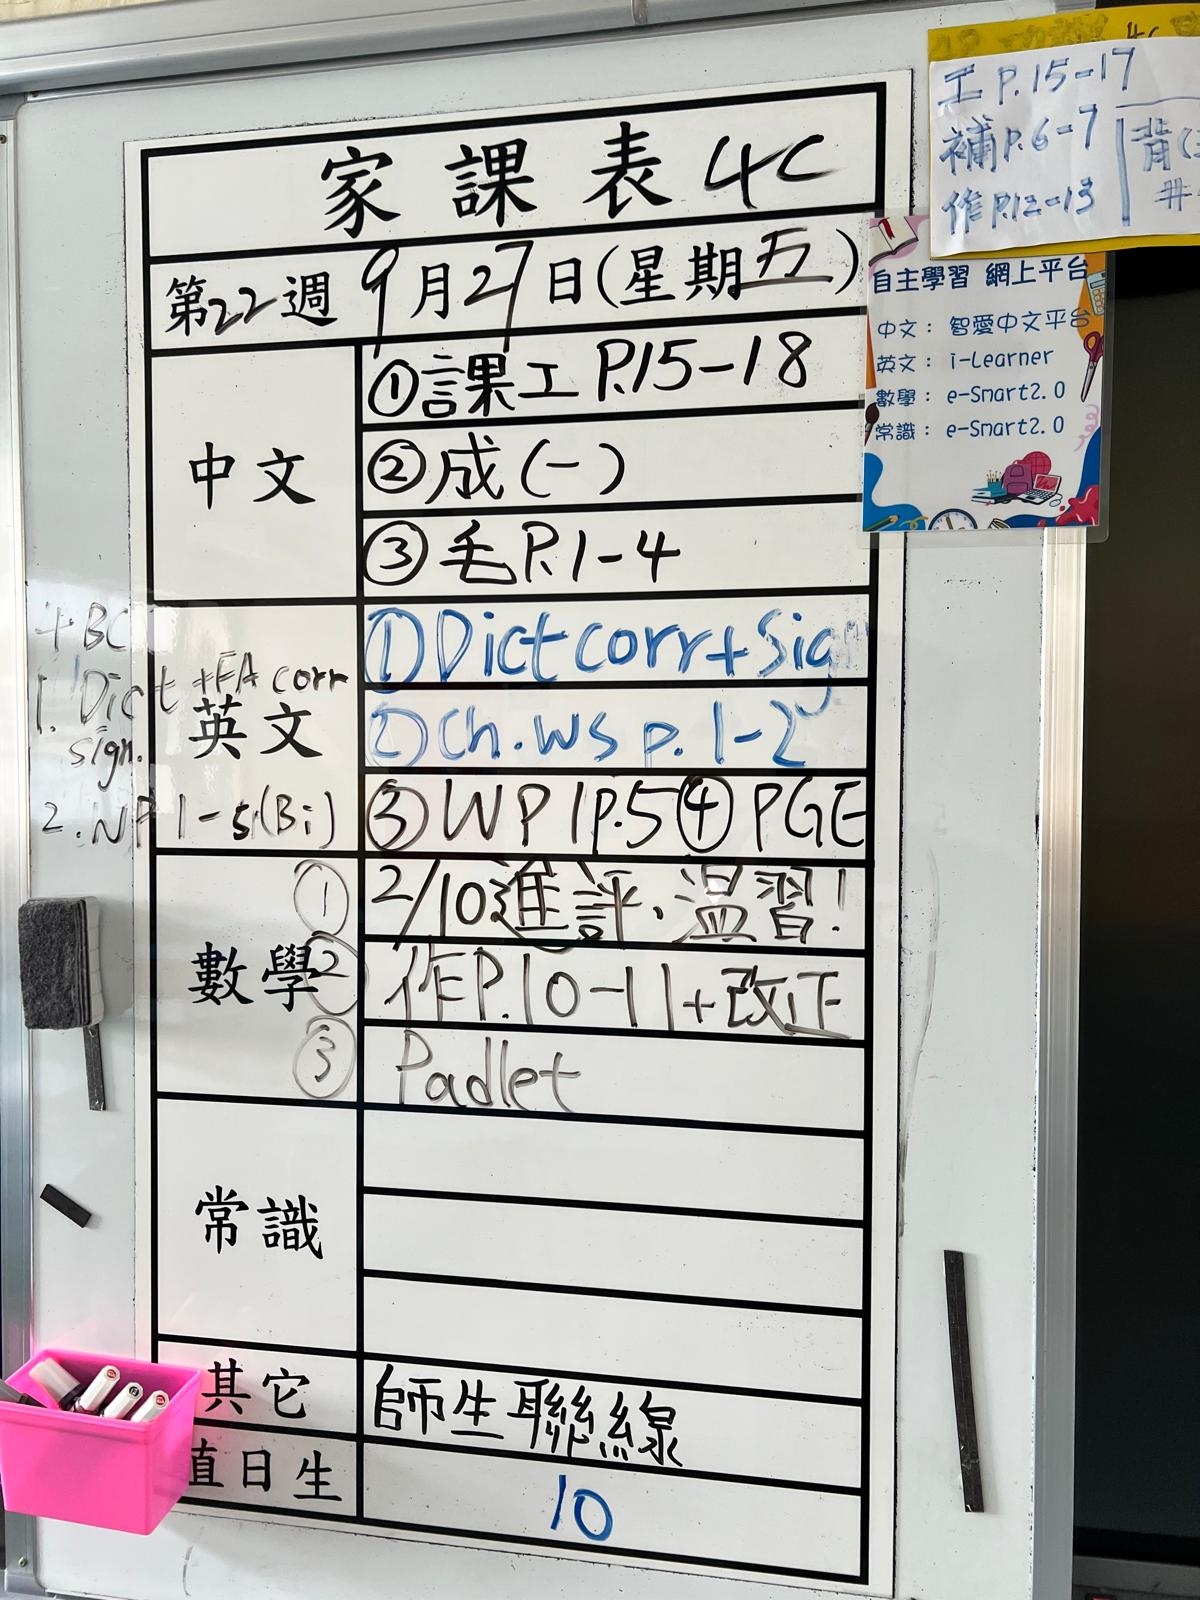 家課表 4C
第22週 9月27日(星期五)
中文
①課工 P.15-18
②成(一)
③毛 P.1-4
英文
①Dict corr + Sig
②Ch. WS p. 1-2
③WP 1 P.5 ④PGE
數學
① 2/10進評、溫習！
② 作P.10-11+改正
③ Padlet
常識
其它
師生聯線
值日生
10
4BC
1. Dict + FA corr
sign.
2. NP 1-5(Bi)
4C
工 P.15-17
補 P.6-7
作 P.12-13
背
自主學習 網上平台
中文： 智愛中文平台
英文： i-Learner
數學： e-Smart2.0
常識： e-Smart2.0